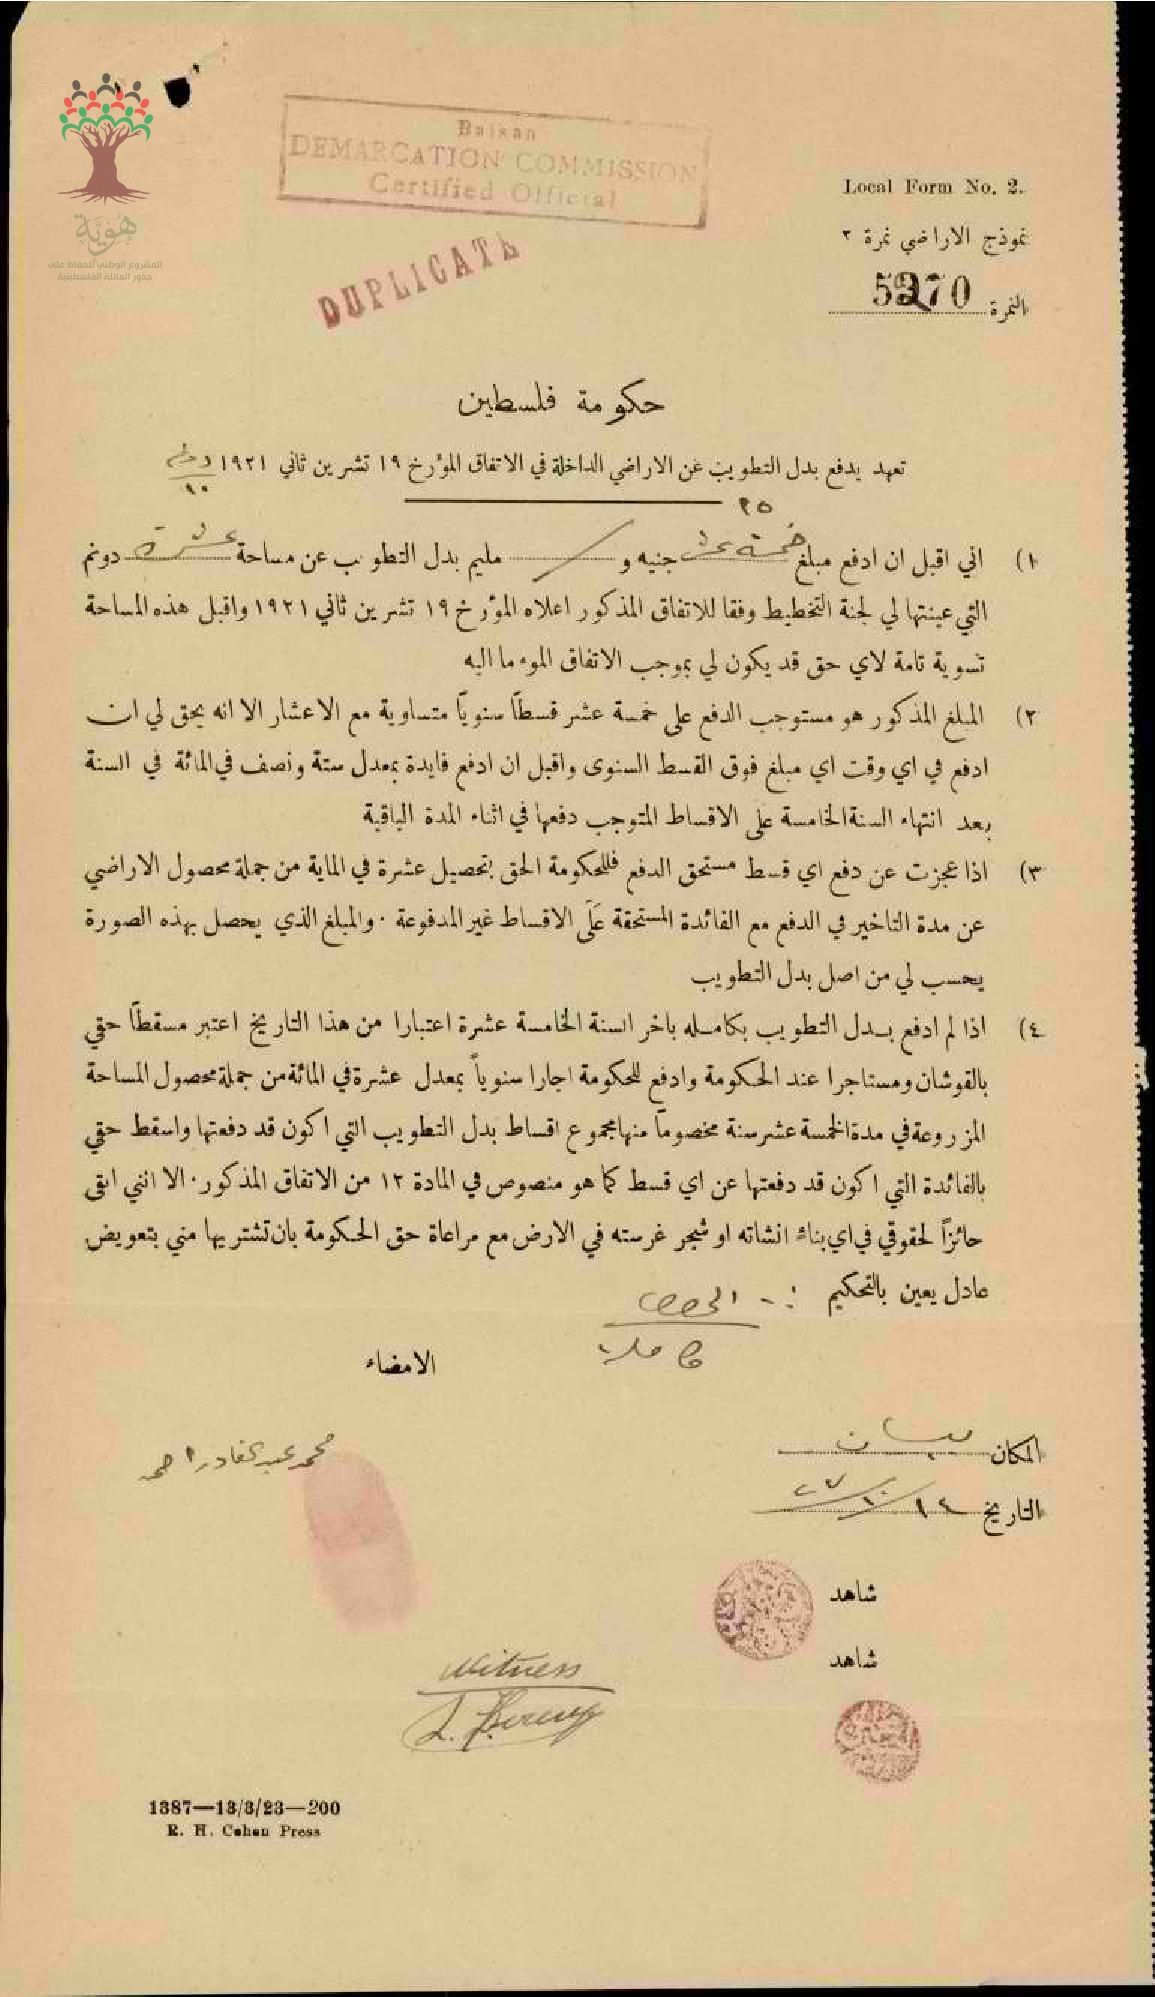 Baisan
DEMARCATION COMMISSION
Certified Official
DUPLICATE
هُوِيَّة
المشروع الوطني للحفاظ على
جذور العائلة الفلسطينية
Local Form No. 2.
نموذج الاراضي نمرة ٢
النمرة 5270
حكومة فلسطين
تعهد يدفع بدل التطويب عن الاراضي الداخلة في الاتفاق المؤرخ ١٩ تشرين ثاني ١٩٢١
١) اني اقبل ان ادفع مبلغ خمسة عشر جنيه و / مليم بدل التطويب عن مساحة عشرة دونم
التي عينتها لي لجنة التخطيط وفقا للاتفاق المذكور اعلاه المؤرخ ١٩ تشرين ثاني ١٩٢١ واقبل هذه المساحة
تسوية تامة لاي حق قد يكون لي بموجب الاتفاق الموء ما اليه
٢) المبلغ المذكور هو مستوجب الدفع على خمسة عشر قسطًا سنويًا متساوية مع الاعشار الا انه يحق لي ان
ادفع في اي وقت اي مبلغ فوق القسط السنوى واقبل ان ادفع فايدة بمعدل ستة ونصف في المائة في السنة
بعد انتهاء السنة الخامسة على الاقساط المتوجب دفعها في اثناء المدة الباقية
٣) اذا عجزت عن دفع اي قسط مستحق الدفع فللحكومة الحق بتحصيل عشرة في الماية من جملة محصول الاراضي
عن مدة التاخير في الدفع مع الفائدة المستحقة عَلَى الاقساط غير المدفوعة . والمبلغ الذي يحصل بهذه الصورة
يحسب لي من اصل بدل التطويب
٤) اذا لم ادفع بدل التطويب بكامله باخر السنة الخامسة عشرة اعتبارا من هذا التاريخ اعتبر مسقطًا حقي
بالقوشان ومستاجرا عند الحكومة وادفع للحكومة اجارا سنوياً بمعدل عشرة في المائة من جملة محصول المساحة
المزروعة في مدة الخمسة عشر سنة مخصوماً منها مجموع اقساط بدل التطويب التي اكون قد دفعتها واسقط حقي
بالفائدة التي اكون قد دفعتها عن اي قسط كما هو منصوص في المادة ١٢ من الاتفاق المذكور . الا انني ابقى
حائزاً لحقوقي في اي بناء انشاته او شجر غرسته في الارض مع مراعاة حق الحكومة بان تشتريها مني بتعويض
عادل يعين بالتحكيم
الامضاء
محمد عبد القادر احمد
المكان بيسان
التاريخ ١٤/١٠/٢٧
شاهد
شاهد
Witness
1387—13/3/23—200
R. H. Cohen Press